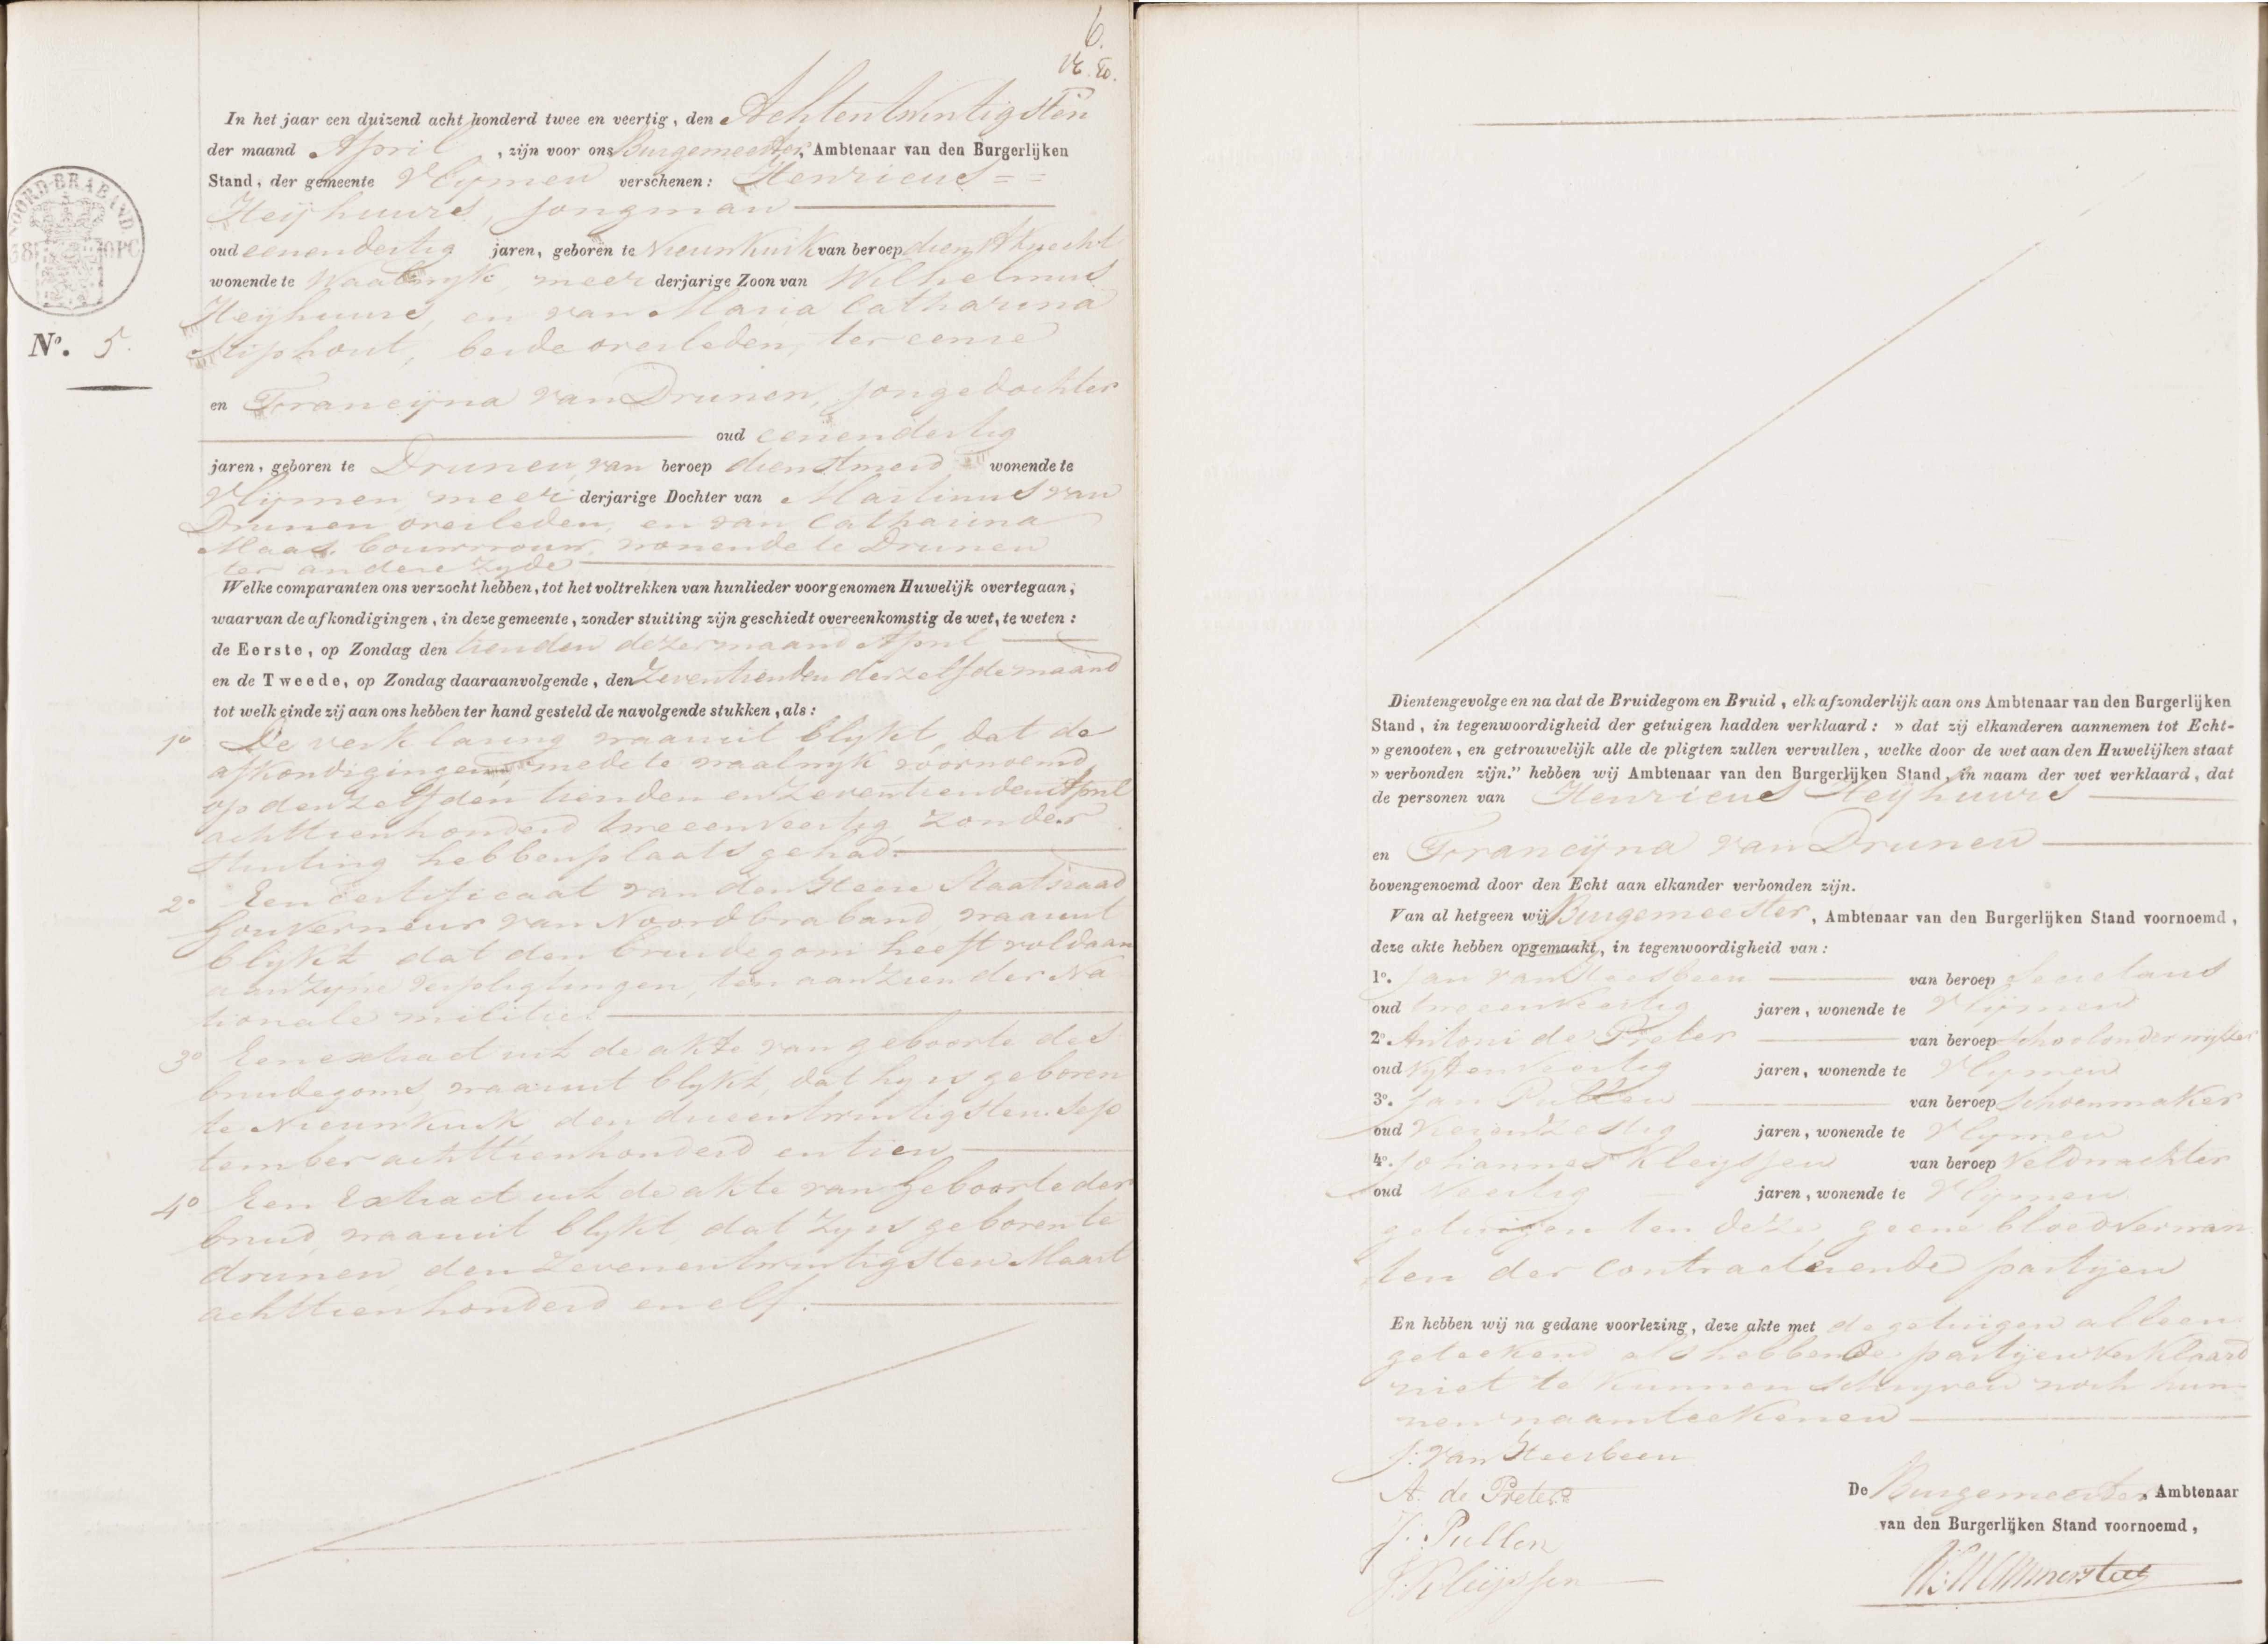 6.
In het jaar een duizend acht honderd twee en veertig, den Achtentwintigsten
der maand April , zijn voor ons Burgemeester, Ambtenaar van den Burgerlijken
Stand, der gemeente Vlijmen verschenen: Henricus = =
Heijhuurs, jongman
oud eenendertig jaren, geboren te Nieuwkuik van beroep dienstknecht
wonende te Waalwyk meer derjarige Zoon van Wilhelmus
Heijhuurs, en van Maria Catharina
Stiphout, beide overleden, ter eenre
en Francijna van Drunen, jongedochter
oud eenendertig
jaren, geboren te Drunen, van beroep dienstmeid wonende te
Vlijmen, meer derjarige Dochter van Martinus van
Drunen overleden, en van Catharina
Maas, bouwvrouw, wonende te Drunen
ter andere zyde
Welke comparanten ons verzocht hebben, tot het voltrekken van hunlieder voorgenomen Huwelijk overtegaan,
waarvan de afkondigingen, in deze gemeente, zonder stuiting zijn geschiedt overeenkomstig de wet, te weten:
de Eerste, op Zondag den tienden dezer maand April
en de Tweede, op Zondag daaraanvolgende, den Zeventienden derzelfde maand
tot welk einde zij aan ons hebben ter hand gesteld de navolgende stukken, als:
NOORD-BRABAND
No. 5.
1o De verklaring waaruit blykt, dat de
afkondigingen, mede te waalwyk voornoemd
op denzelfden tienden en Zeventienden April
achttienhonderd tweeenveertig, zonder
stuiting hebben plaats gehad.
2o Een certificaat van den Heere Staatsraad
Gouverneur van Noordbraband, waaruit
blijkt dat den bruidegom heeft voldaan
aan zyne verpligtingen, ten aanzien der Na
tionale militie.
3o Een extract uit de akte van geboorte des
bruidegoms, waaruit blykt, dat hy is geboren
te Nieuwkuik den drieentwintigsten Sep
tember achttienhonderd en tien
4o Een Extract uit de akte van Geboorte der
bruid, waaruit blykt, dat zy is geboren te
drunen, den Zevenentwintigsten Maart
achttienhonderd en elf.
Dientengevolge en na dat de Bruidegom en Bruid, elk afzonderlijk aan ons Ambtenaar van den Burgerlijken
Stand, in tegenwoordigheid der getuigen hadden verklaard: » dat zij elkanderen aannemen tot Echt-
» genooten, en getrouwelijk alle de pligten zullen vervullen, welke door de wet aan den Huwelijken staat
» verbonden zijn." hebben wij Ambtenaar van den Burgerlijken Stand, in naam der wet verklaard, dat
de personen van Henricus Heijhuurs
en Francijna van Drunen
bovengenoemd door den Echt aan elkander verbonden zijn.
Van al hetgeen wij Burgemeester, Ambtenaar van den Burgerlijken Stand voornoemd,
deze akte hebben opgemaakt, in tegenwoordigheid van:
1o. Jan van Heesbeen van beroep Secretaris
oud tweeenveertig jaren, wonende te Vlijmen
2o Antoni de Preter van beroep schoolonderwijzer
oud Vyfenveertig jaren, wonende te Vlijmen
3o. Jan Pullen van beroep Schoenmaker
oud Vierenzestig jaren, wonende te Vlijmen
4o. Johannes Kleijssen van beroep Veldwachter
oud Veertig jaren, wonende te Vlijmen
getuigen ten deze, geene bloedverwan
ten der contracterende partijen
En hebben wij na gedane voorlezing, deze akte met de getuigen alleen
geteekend als hebbende partijen verklaard
niet te kunnen schryven noch hun
nen naamteekenen
J. van Heesbeen
A. de Preter
J. Pullen
J. Kleijssen
De Burgemeester, Ambtenaar
van den Burgerlijken Stand voornoemd,